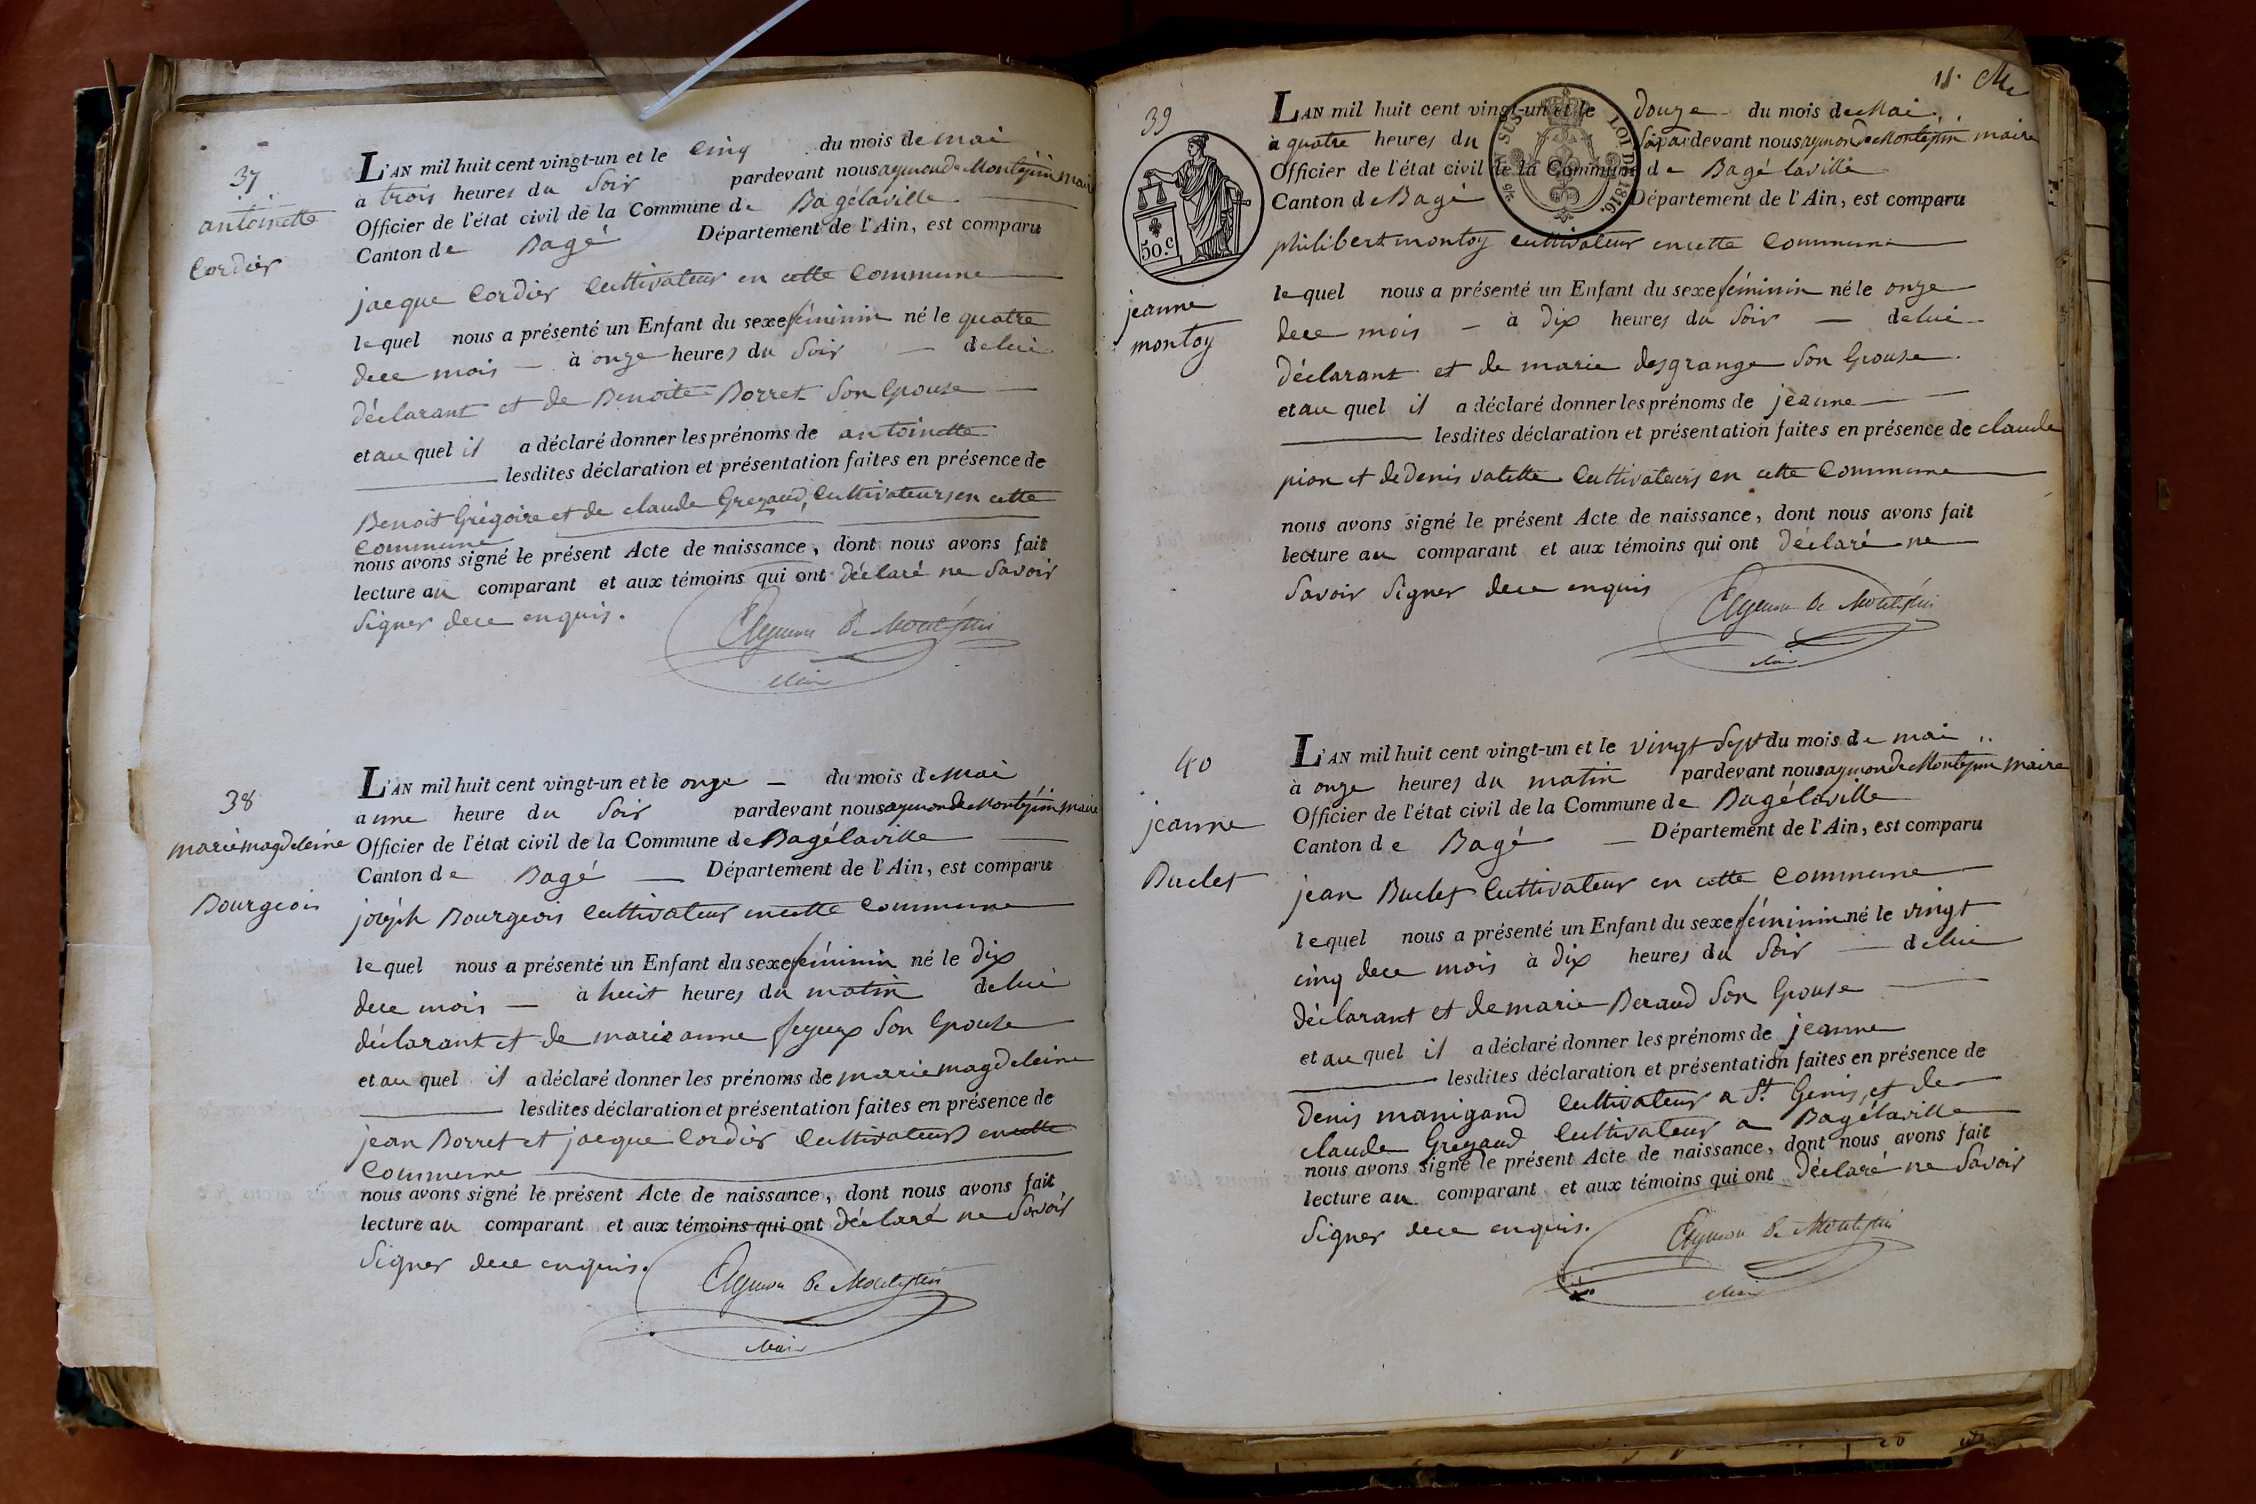 37
antoinette
Cordier
L'AN mil huit cent vingt-un et le Cinq du mois de mai
à trois heures du Soir pardevant nous aymon de Montépin maire
Officier de l'état civil de la Commune de Bagélaville
Canton de Bagé Département de l'Ain, est comparu
jacque Cordier Cultivateur en cette Commune
lequel nous a présenté un Enfant du sexe féminin né le quatre
dece mois à onze heures du Soir de lui
déclarant et de Benoite Borret Son Epouse
et au quel il a déclaré donner les prénoms de antoinette
lesdites déclaration et présentation faites en présence de
Benoit Grégoire et de claude Grezaud, Cultivateurs en cette
Commune
nous avons signé le présent Acte de naissance, dont nous avons fait
lecture au comparant et aux témoins qui ont déclaré ne Savoir
Signer dece enquis.
Aymon De Montépin
Maire
38
marie magdeleine
Bourgeois
L'AN mil huit cent vingt-un et le onze du mois de Mai
a une heure du Soir pardevant nous aymon de Montépin maire
Officier de l'état civil de la Commune de Bagélaville
Canton de Bagé Département de l'Ain, est comparu
joséph Bourgeois Cultivateur en cette Commune
lequel nous a présenté un Enfant du sexe féminin né le Dix
dece mois à huit heures du matin de lui
déclarant et de marie anne feyeux Son Epouse
et au quel il a déclaré donner les prénoms de marie magdeleine
lesdites déclaration et présentation faites en présence de
jean Borret et jacque Cordier Cultivateurs en cette
Commune
nous avons signé le présent Acte de naissance, dont nous avons fait
lecture au comparant et aux témoins qui ont déclaré ne Savoir
Signer dece enquis.
Aymon De Montépin
Maire
39
50.c
jeanne
montoy
LOI DE 1816.
L'AN mil huit cent vingt-un et le douze du mois de Mai
à quatre heures du Soir pardevant nous aymon de Montépin maire
Officier de l'état civil de la Commune de Bagé laville
Canton de Bagé Département de l'Ain, est comparu
philibert montoy cultivateur en cette Commune
lequel nous a présenté un Enfant du sexe féminin né le onze
dece mois à dix heures du Soir de lui
déclarant et de marie desgrange Son Epouse
et au quel il a déclaré donner les prénoms de jeanne
lesdites déclaration et présentation faites en présence de claude
pion et de denis valette Cultivateurs en cette Commune
nous avons signé le présent Acte de naissance, dont nous avons fait
lecture au comparant et aux témoins qui ont déclaré ne
Savoir Signer dece enquis
Aymon De Montépin
Maire
40
jeanne
Buclet
L'AN mil huit cent vingt-un et le vingt Sept du mois de mai
à onze heures du matin pardevant nous aymon de Montépin maire
Officier de l'état civil de la Commune de Bagélaville
Canton de Bagé Département de l'Ain, est comparu
jean Buclet Cultivateur en cette Commune
lequel nous a présenté un Enfant du sexe féminin né le vingt
cinq dece mois à dix heures du Soir de lui
déclarant et de marie Beraud Son Epouse
et au quel il a déclaré donner les prénoms de jeanne
lesdites déclaration et présentation faites en présence de
Denis manigand Cultivateur a St. Genis, et de
claude Grezaud Cultivateur a Bagélaville
nous avons signé le présent Acte de naissance, dont nous avons fait
lecture au comparant et aux témoins qui ont déclaré ne Savoir
Signer dece enquis.
Aymon De Montépin
Maire